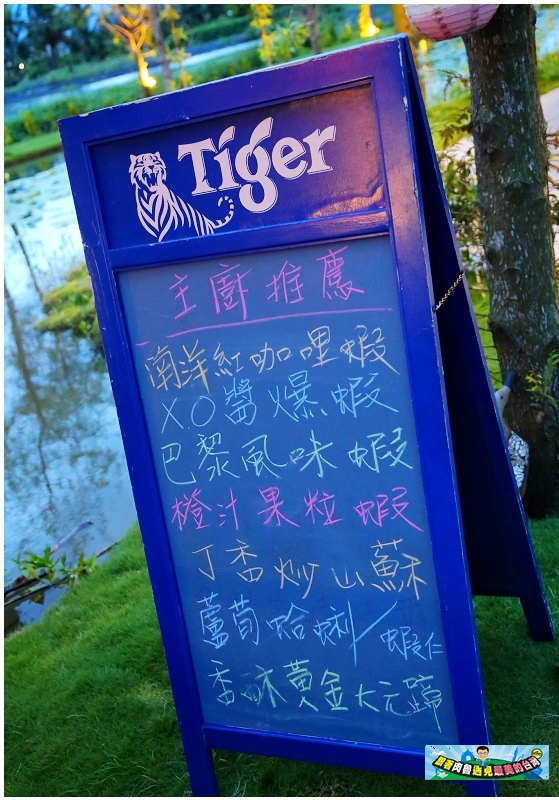 Tiger
主廚推薦
南洋紅咖哩蝦
X.O醬爆蝦
巴黎風味蝦
橙汁果粒蝦
丁香炒山蘇
蘆筍蛤蜊/蝦仁
香酥黃金大元蹄
跟著肉魯遇見最美的台灣